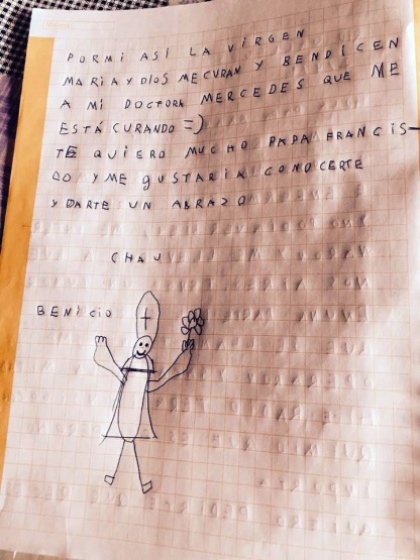 PORMI ASÍ LA VIRGEN
MARIA Y DIOS ME CURAN Y BENDICEN
A MI DOCTORA MERCEDES QUE ME
ESTÁ CURANDO =)
TE QUIERO MUCHO PAPA FRANCIS-
CO Y ME GUSTARIA CONOCERTE
Y DARTE UN ABRAZO
CHAU
BENICIO